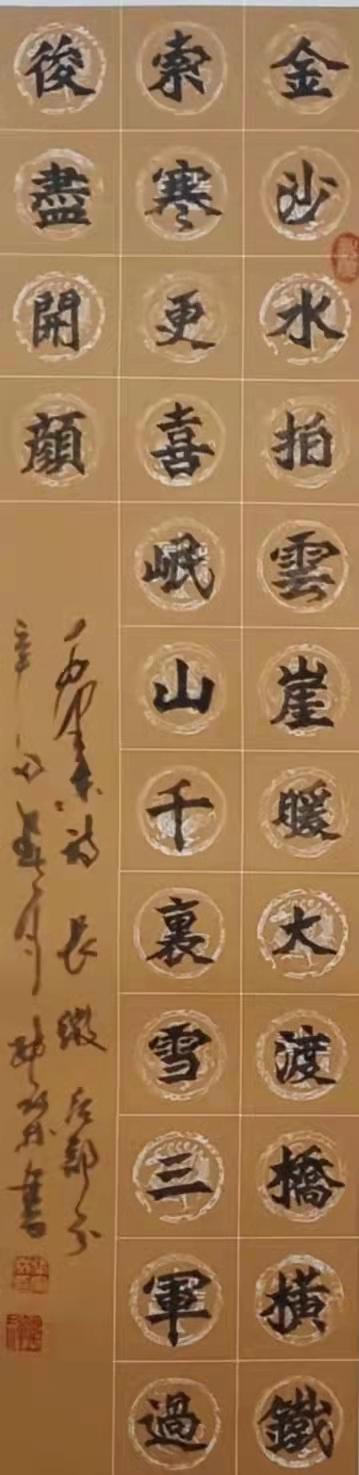 金沙水拍雲崖暖大渡橋横鐵
索寒更喜岷山千裏雪三軍過
後盡開顔
毛澤東詩 長徵 后部分
辛丑 月 書